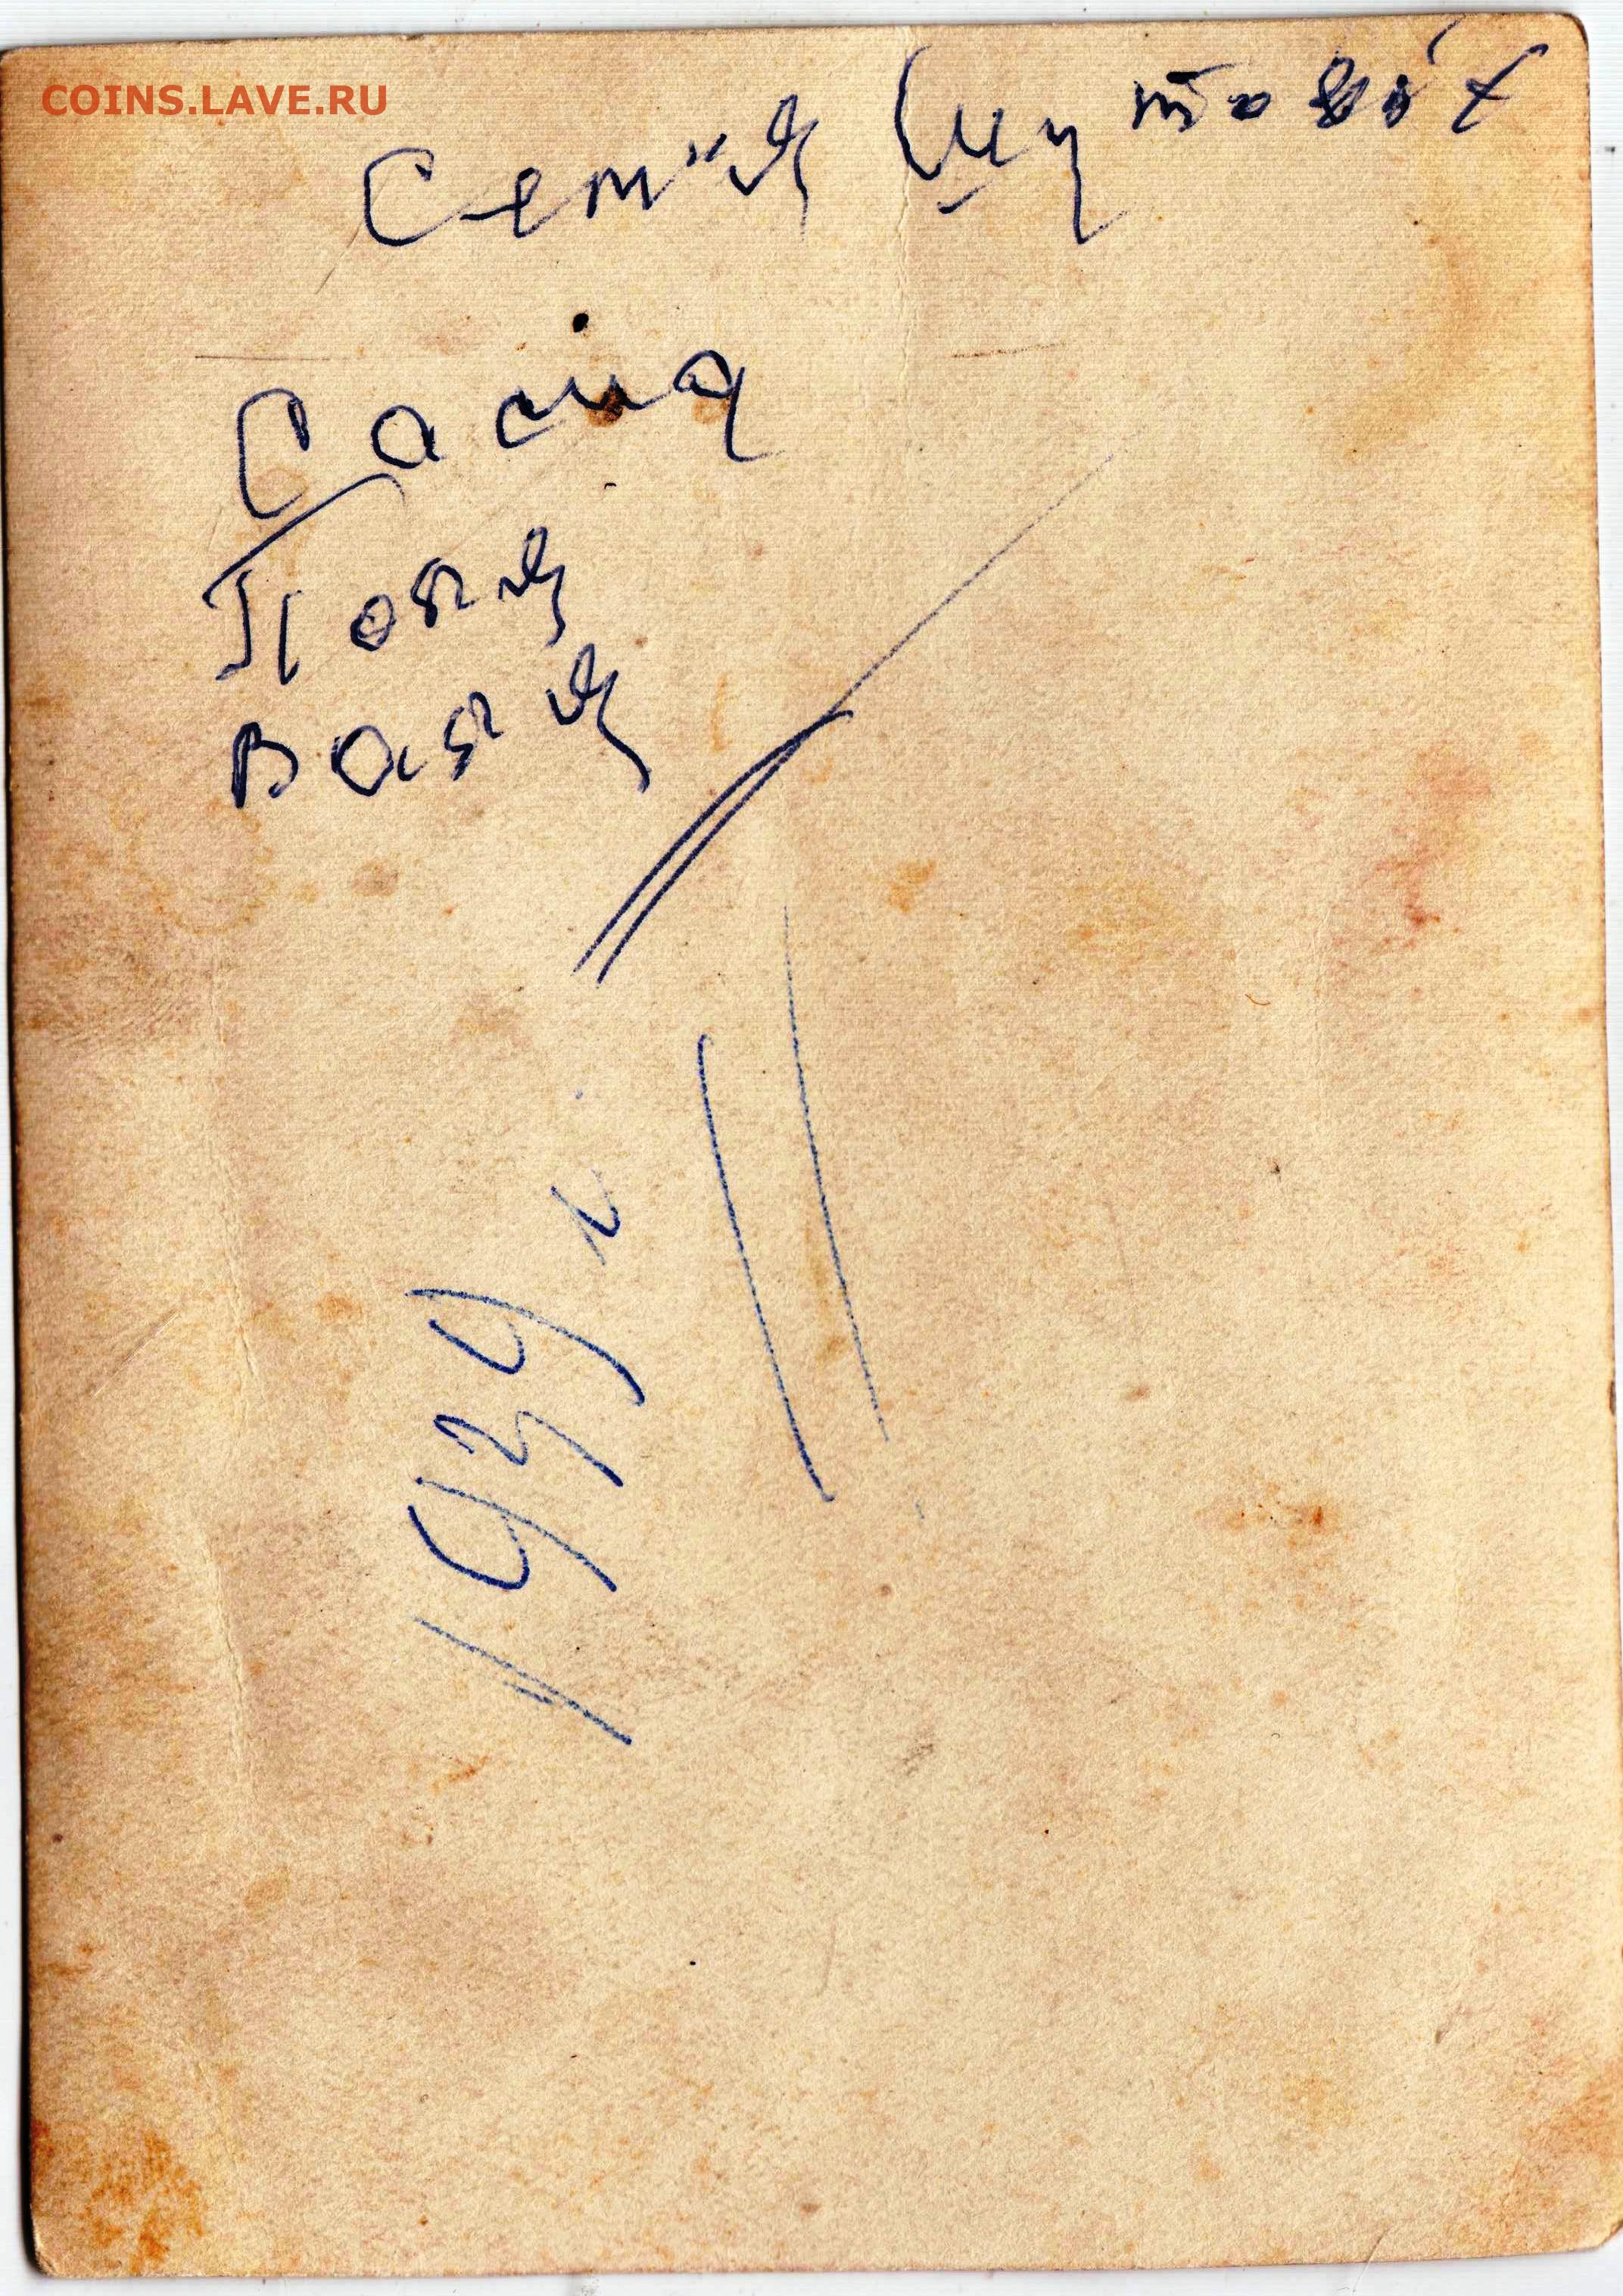 COINS.LAVE.RU
Семья Шутовых
Саша
Толя
Валя
1939 г.